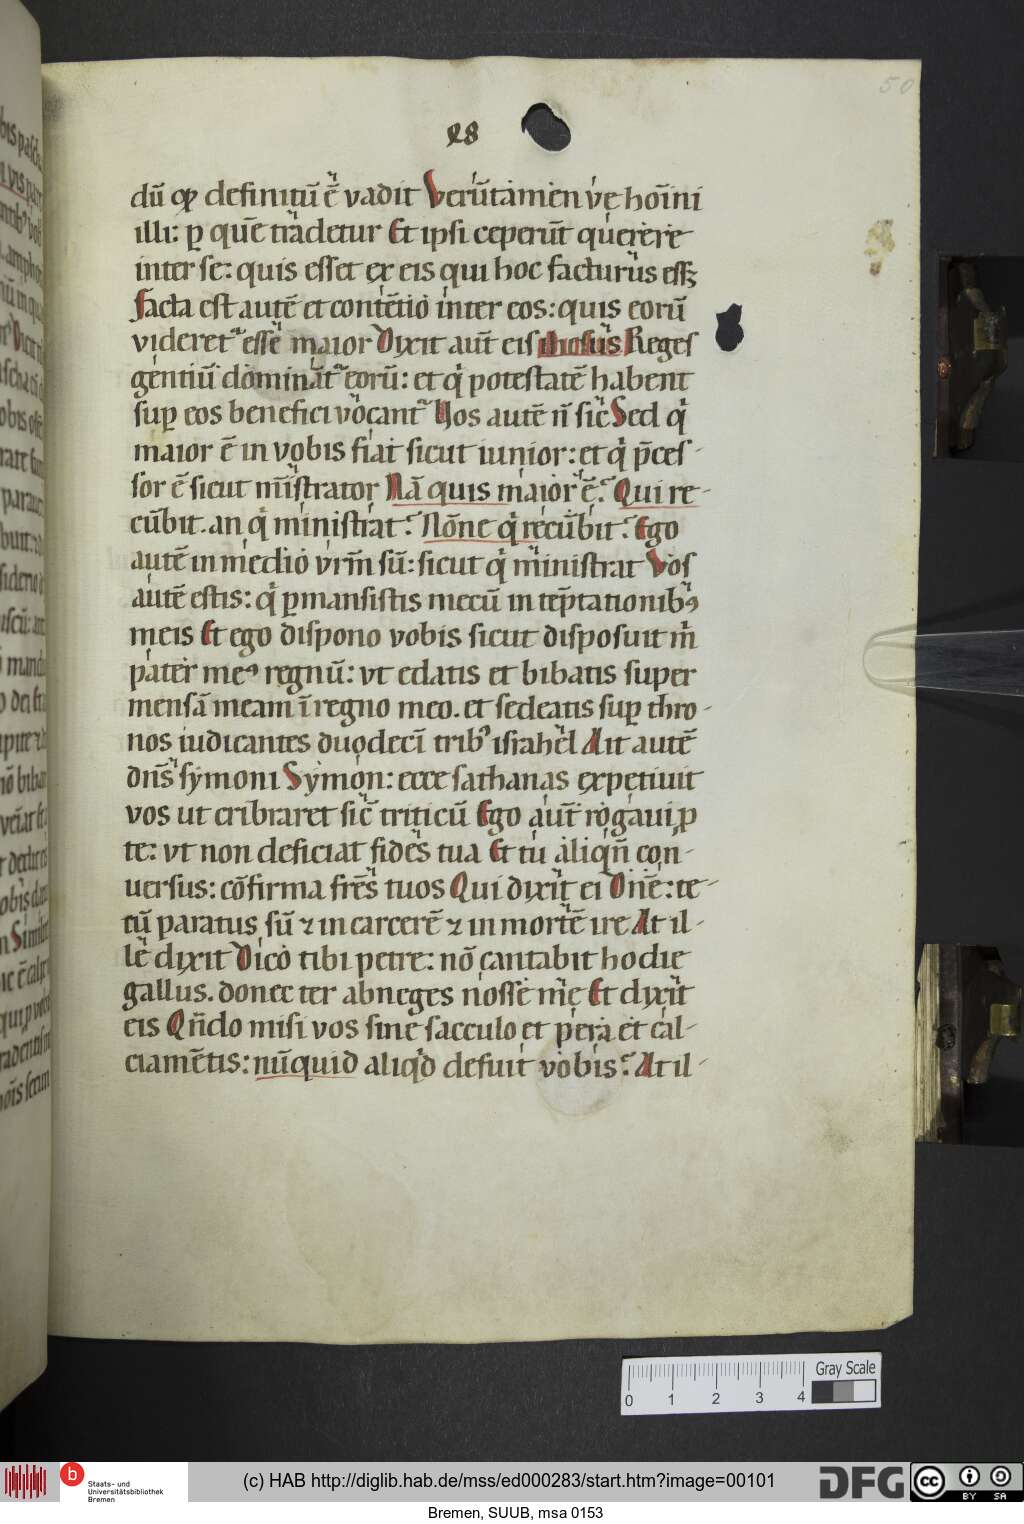 50
48
dū qp definitū ē vadit Verūtamen vę hoīni
illi: p quē tradetur Et ipsi ceperūt querere
inter se: quis esset ex eis qui hoc facturus eſſꝫ
Facta est autē et contētio inter eos: quis eorū
videret᷑ esse maior Dixit aūt eis ihesus Reges
gentiū dominat᷑ eorū: et q̇ potestatē habent
sup eos benefici vocant᷑ Vos autē n̄ sic̄ Sed q̇
maior ē in vobis fiat sicut iunior: et q̇ p̄ces-
sor ē sicut mīstrator Nā quis maior ē? Qui re-
cūbit. an q̇ ministrat? Nōne q̇ recūbit? Ego
autē in medio vr̄m sū: sicut q̇ ministrat Vos
autē estis: q̇ pmansistis mecū in tēptationibꝰ
meis Et ego dispono vobis sicut disposuit m̄
pater meꝰ regnū: vt edatis et bibatis super
mensā meam ī regno meo. et sedeatis sup thro-
nos iudicantes duodecī tribꝰ israhel Ait autē
dn̄s symoni Symon: ecce sathanas expetiuit
vos ut cribraret sic̄ triticū Ego aūt rogaui p
te: vt non deficiat fides tua Et tu aliqn̄ con-
uersus: cōfirma frēs tuos Qui dixit ei Dn̄e: te-
cū paratus sū ⁊ in carcerē ⁊ in mortē ire At il-
le dixit Dico tibi petre: nō cantabit hodie
gallus. donec ter abneges nosse me Et dixit
eis Qn̄do misi vos sine sacculo et pera et cal-
ciamētis: nūquid aliqd defuit vobis? At il-
Gray Scale
0 1 2 3 4
Staats- und
Universitätsbibliothek
Bremen
(c) HAB http://diglib.hab.de/mss/ed000283/start.htm?image=00101
DFG
cc BY SA
Bremen, SUUB, msa 0153